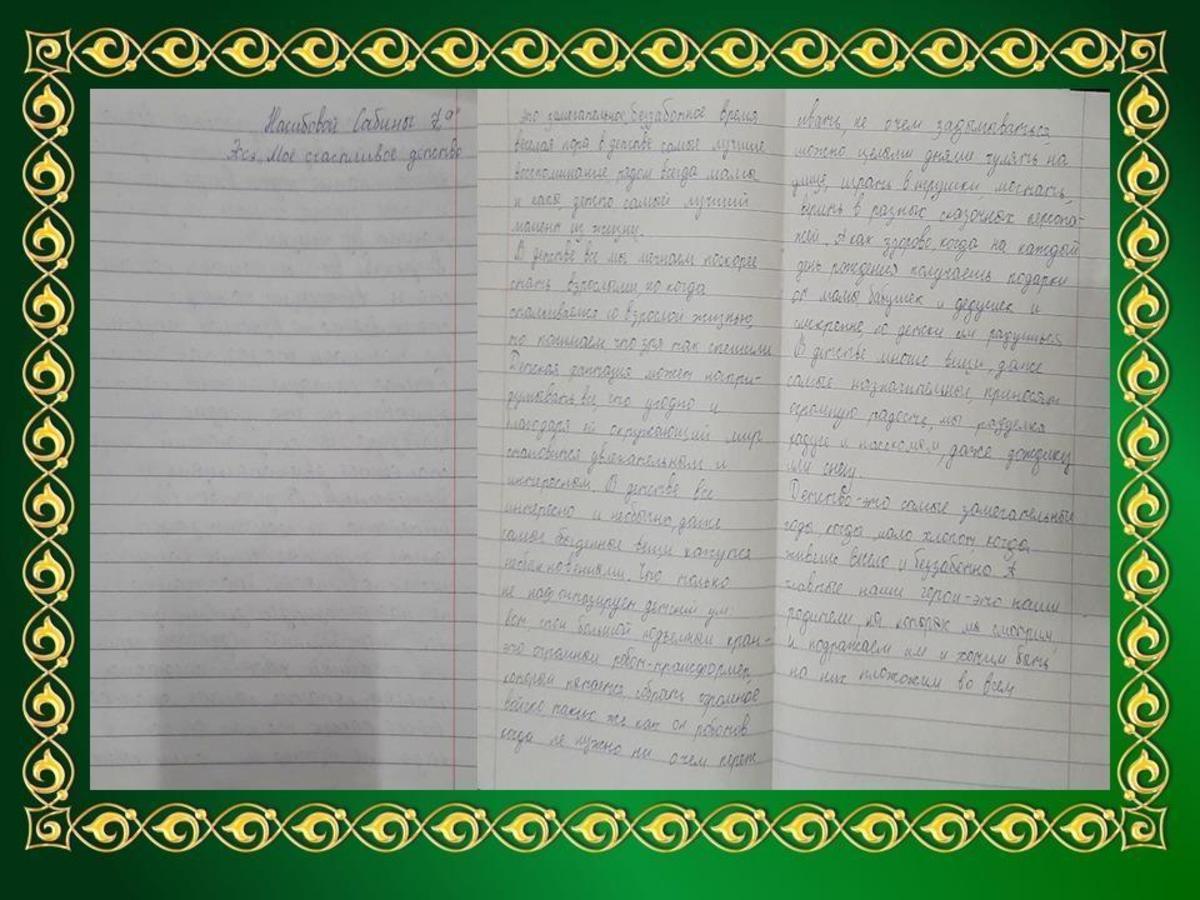 Насибовой Сабины 7"а"
Эссе Мое счастливое детство
это замечательное, беззаботное время
веселая пора в детстве самые лучшие
воспоминание, рядом всегда мама
и папа, детство самый лучший
момент из жизни.
В детстве все мы мечтаем поскорее
стать взрослыми, но когда
сталкиваемся со взрослой жизнью,
то понимаем что зря так спешили
Детская фантазия может напри-
думывать все, что угодно и
благодаря ей окружающий мир
становится увлекательном и
интересном. В детстве все
интересно и необычно, даже
самые обыденные вещи кажутся
необыкновенными. Что только
не нафантазирует детский ум:
вон, тот большой подъемный кран-
это огромный робот-трансформер,
который пытается собрать огромное
войско таких же как он роботов
когда не нужно ни о чем переж
ивать, не очем задумываться,
можно целыми днями гулять на
улице, играть в игрушки, мечтать,
верить в разных сказочных персона-
жей. А как здорово, когда на каждый
день рождения получаешь подарки
от мамы, бабушек и дедушек и
искренне, по детски им радуешься
В детстве многие вещи, даже
самые незначительные, приносят
огромную радость, мы
радуге и насекомым, даже дождику
или снегу.
Детство-это самые замечательные
годы, когда мало хлопот, когда
живешь весело и беззаботно А
главные наши герои-это наши
родители, на которых мы смотрим,
и подражаем им и хотим быть
на них похожим во всем